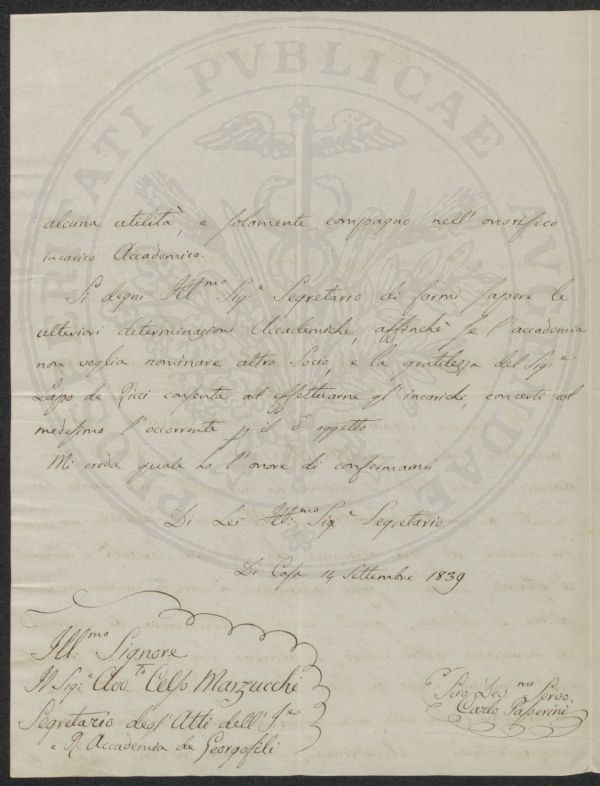 PROSPERITATI PVBLICAE AVGENDAE
alcuna utilità, e solamente compagno nell'onorifico
incarico Accademico.
Si degni Ill.mo Sig.e Segretario di farmi sapere le
ulteriori determinazioni Accademiche, affinchè se l'accademia
non voglia nominare altro Socio, e la gentilezza del Sig.e
Lapo de Ricci consenta ad effettuarne gl'incarichi, concerti col
medesimo l'occorrente p il do oggetto
Mi creda quale ho l'onore di confermarmi
Di Lei Ill.mo Sig.e Segretario
Di Casa 14 Settembre 1839
Ill.mo Signore
Il Sig.e Avv.to Celso Marzucchi
Segretario degl'Atti dell'I.e
e R. Accademia de Georgofili
Dev.mo Servo
Carlo Passerini